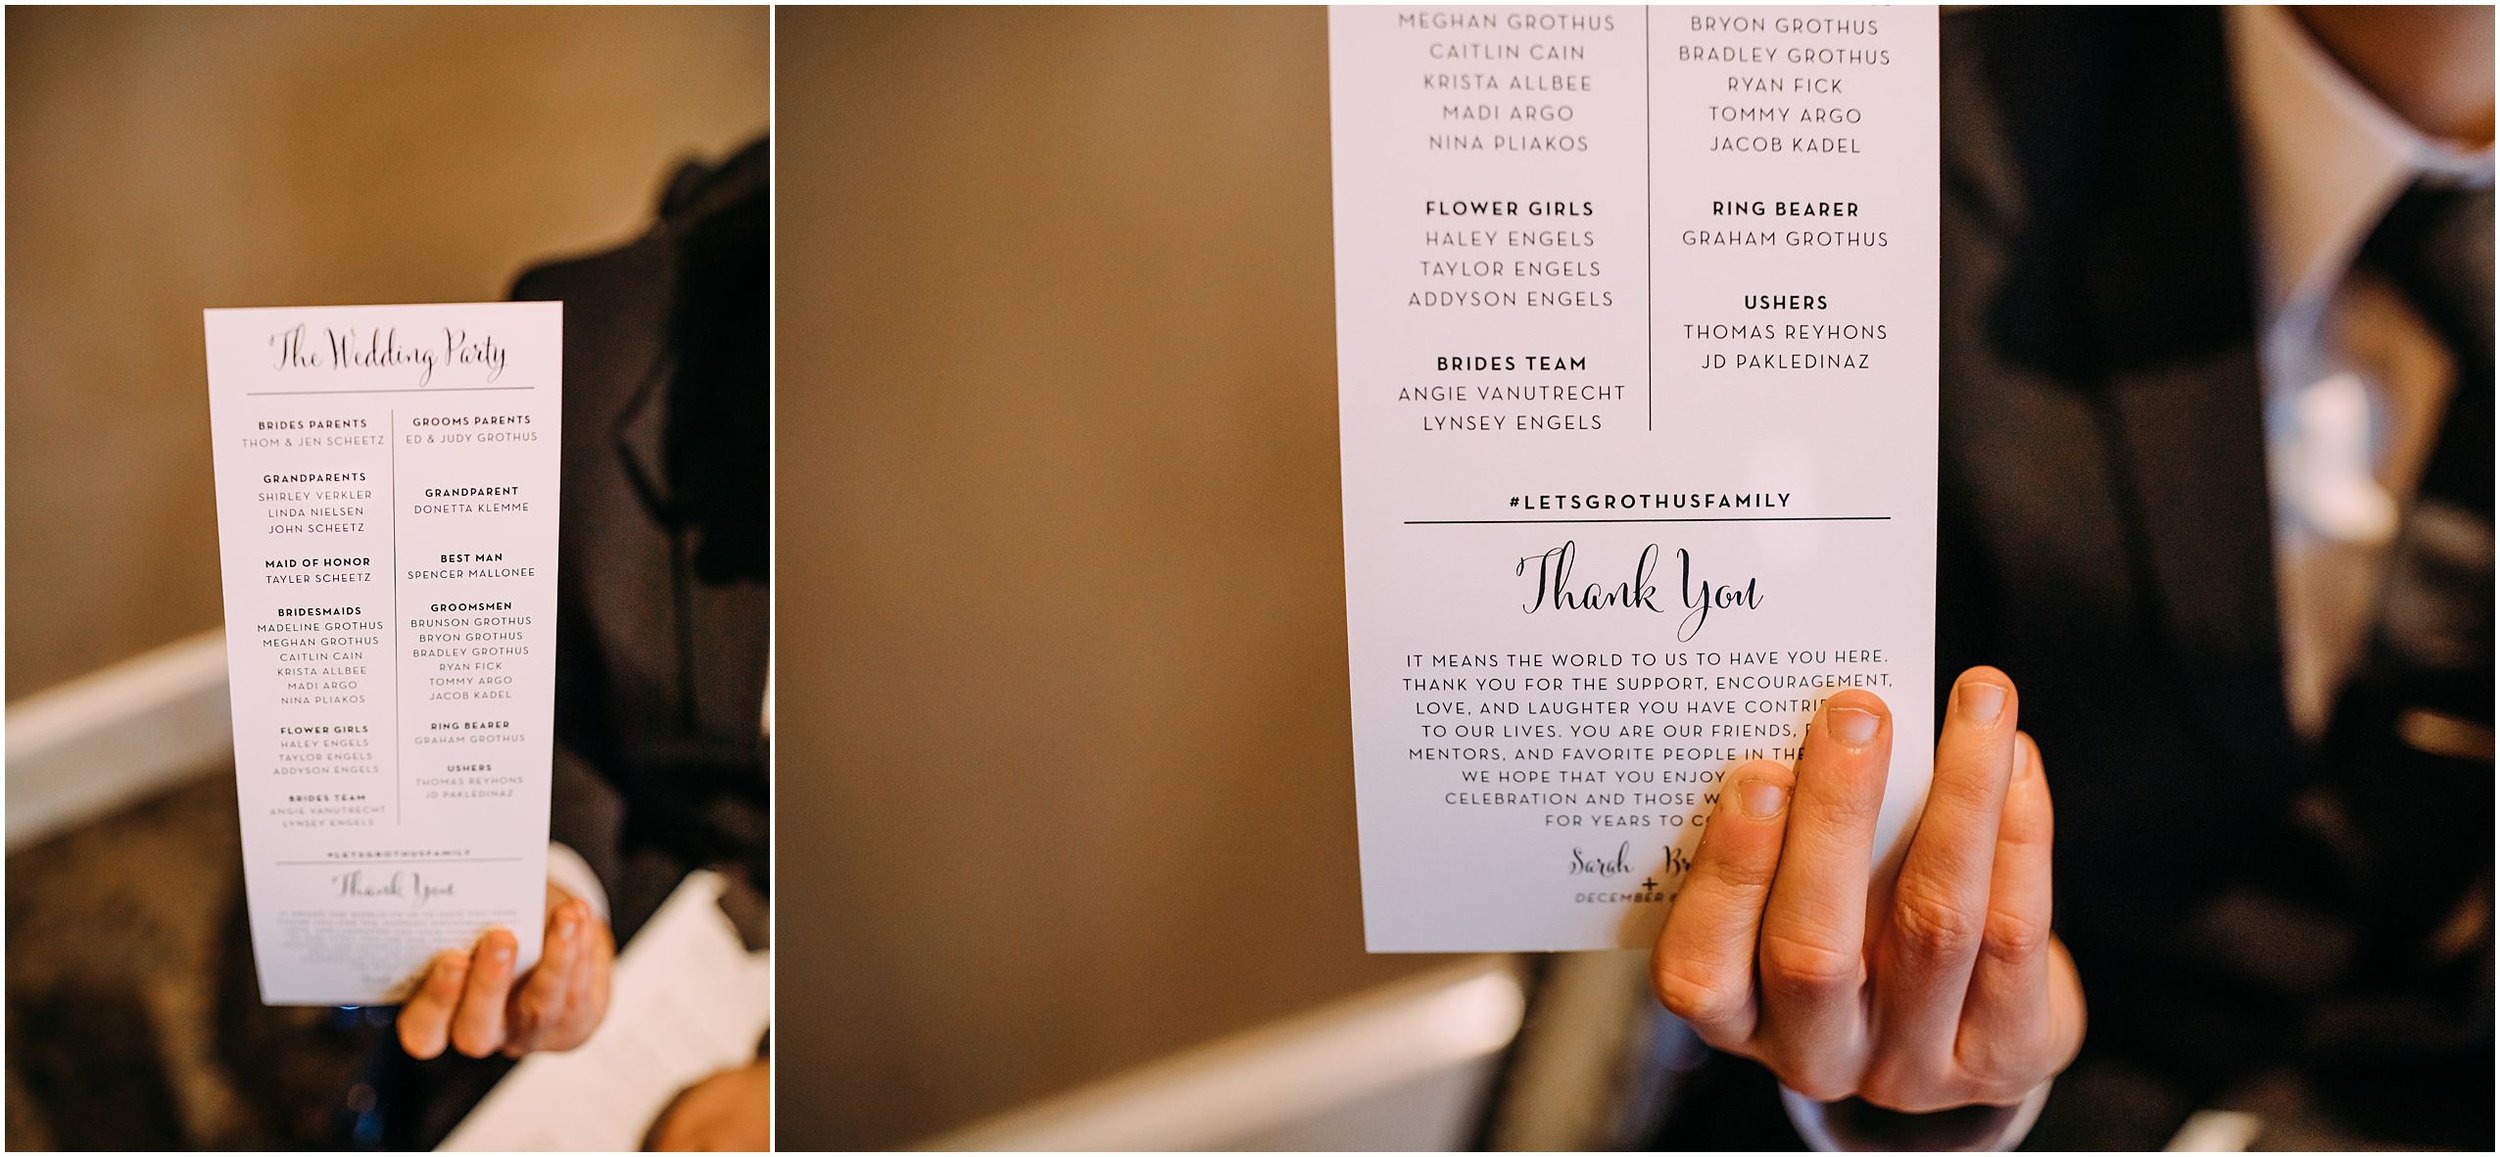 The Wedding Party
BRIDES PARENTS
THOM & JEN SCHEETZ
GRANDPARENTS
SHIRLEY VERKLER
LINDA NIELSEN
JOHN SCHEETZ
MAID OF HONOR
TAYLER SCHEETZ
BRIDESMAIDS
MADELINE GROTHUS
MEGHAN GROTHUS
CAITLIN CAIN
KRISTA ALLBEE
MADI ARGO
NINA PLIAKOS
FLOWER GIRLS
HALEY ENGELS
TAYLOR ENGELS
ADDYSON ENGELS
BRIDES TEAM
ANGIE VANUTRECHT
LYNSEY ENGELS
GROOMS PARENTS
ED & JUDY GROTHUS
GRANDPARENT
DONETTA KLEMME
BEST MAN
SPENCER MALLONEE
GROOMSMEN
BRUNSON GROTHUS
BRYON GROTHUS
BRADLEY GROTHUS
RYAN FICK
TOMMY ARGO
JACOB KADEL
RING BEARER
GRAHAM GROTHUS
USHERS
THOMAS REYHONS
JD PAKLEDINAZ
#LETSGROTHUSFAMILY
Thank You
MEGHAN GROTHUS
CAITLIN CAIN
KRISTA ALLBEE
MADI ARGO
NINA PLIAKOS
FLOWER GIRLS
HALEY ENGELS
TAYLOR ENGELS
ADDYSON ENGELS
BRIDES TEAM
ANGIE VANUTRECHT
LYNSEY ENGELS
BRYON GROTHUS
BRADLEY GROTHUS
RYAN FICK
TOMMY ARGO
JACOB KADEL
RING BEARER
GRAHAM GROTHUS
USHERS
THOMAS REYHONS
JD PAKLEDINAZ
#LETSGROTHUSFAMILY
Thank You
IT MEANS THE WORLD TO US TO HAVE YOU HERE.
THANK YOU FOR THE SUPPORT, ENCOURAGEMENT,
LOVE, AND LAUGHTER YOU HAVE
TO OUR LIVES. YOU ARE OUR FRIENDS,
MENTORS, AND FAVORITE PEOPLE IN
WE HOPE THAT YOU ENJOY
CELEBRATION AND THOSE
FOR YEARS TO
Sarah +
DECEMBER